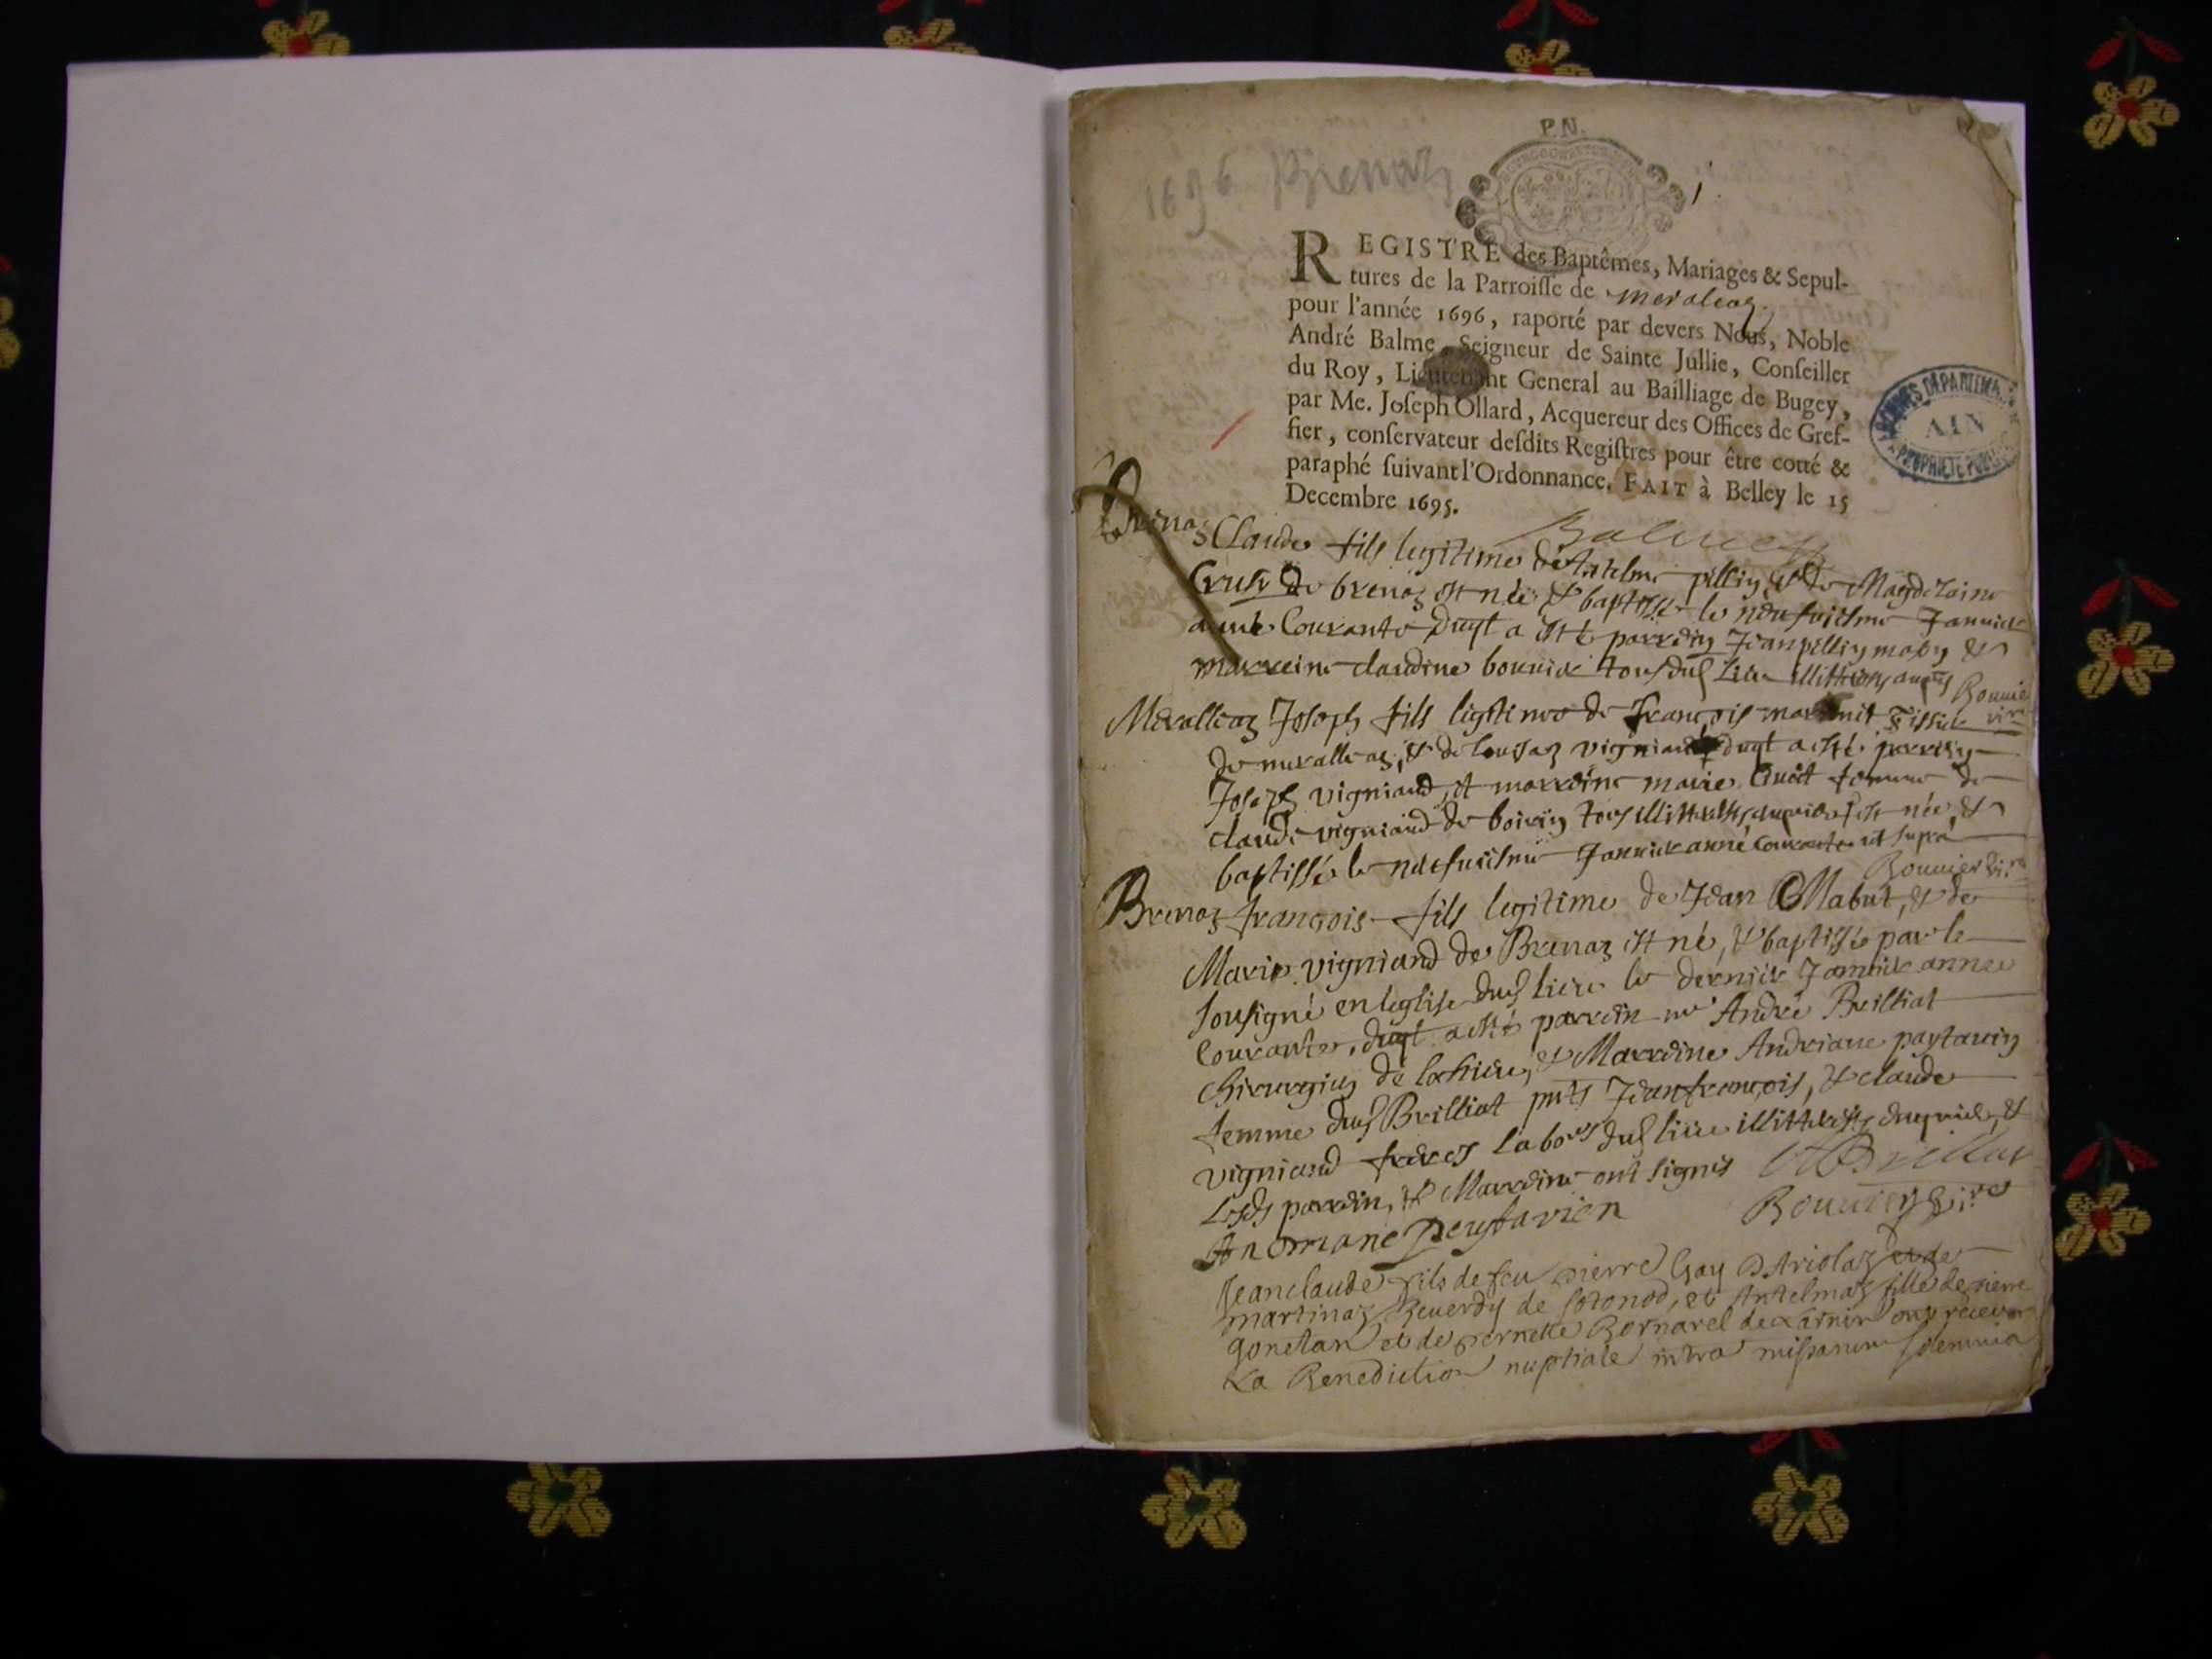 P.N.
1696 Brenaz
1
REGISTRE des Baptêmes, Mariages & Sepul-
tures de la Parroisse de meraleaz
pour l'année 1696, raporté par devers Nous, Noble
André Balme, Seigneur de Sainte Jullie, Conseiller
du Roy, Lieutenant General au Bailliage de Bugey,
par Me. Joseph Ollard, Acquereur des Offices de Gref-
fier, conservateur desdits Registres pour être cotté &
paraphé suivant l'Ordonnance. FAIT à Belley le 15
Decembre 1695.
ARCHIVES DÉPARTEMENTALES
AIN
PROPRIÉTÉ PUBLIQUE
Balme
Brenaz Claude fils legitime de Antelme pillin & de Magdelaine
de brenaz est née & baptissé le neufuiesme Januier
année Courante duqt a esté parrein Jean pillin &
marreine claudine bouuier tous dud lieu
Bouuier
Meralleaz Joseph fils ligitime de françois
de meralleaz, & de Louisaz vigniand duqt a esté parrein
Joseph vigniand, et marreine marie femme de
claude vigniand de tous est née, &
baptissé le neufuiesme Januier année Courante ut supra
Bouuier
Brenaz françois fils legitime de Jean Mabut, & de
Marie vigniand de Brenaz est né, & baptissé par le
sousigné en leglise dud lieu le dernier Januier annee
Courante, duqt a esté parrein me André Brilliat
chirurgien de & Marreine Andriane paytauin
femme dud Brilliat pnts Jeanfrançois, & claude
vigniand freres dud lieu &
Lesds parrein, & Marreine ont signés A Brillat
Andriane peystavien Bouuier
Jeanclaude fils de feu pierre Gay D'Ariolaz et de
martinaz Reuerdy de sotonod, et Antelmaz fille de pierre
gonetan et de pernette Bornarel de ont receu
La Benediction nuptiale intra missarum solemnia